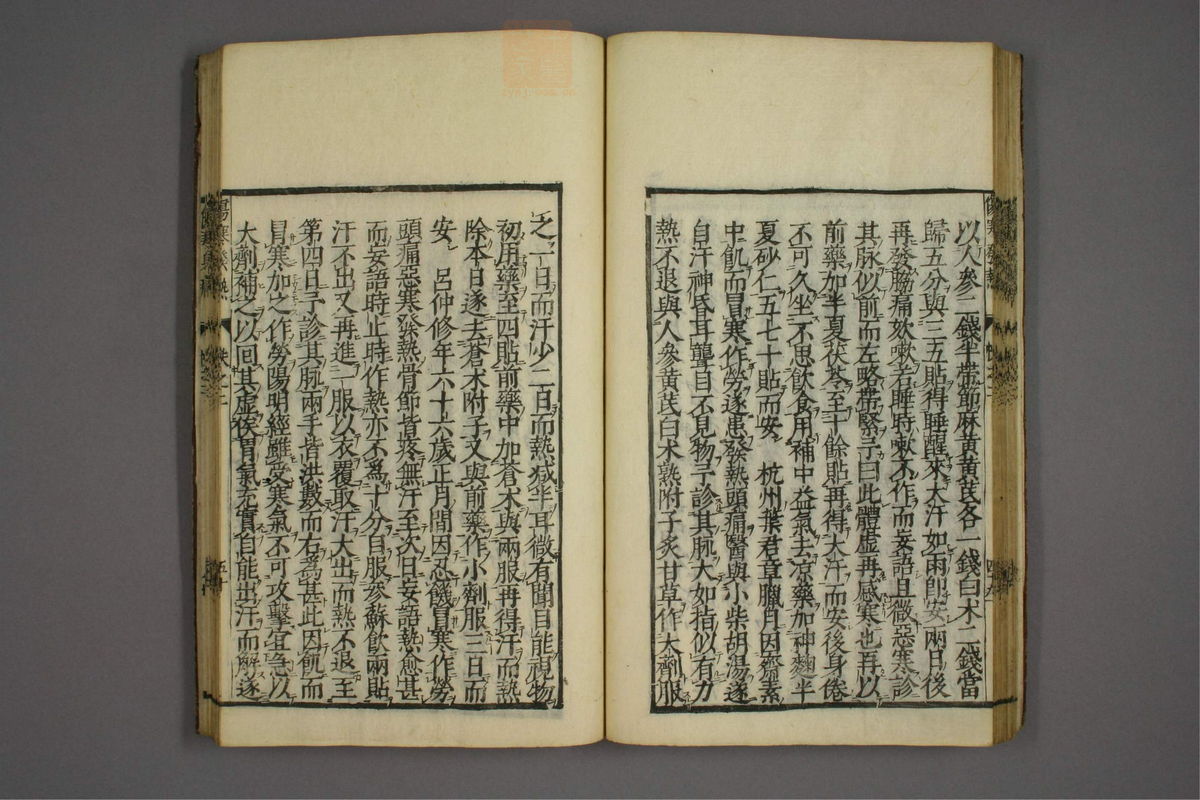 以人參二錢半帶節麻黃黃芪各一錢白朮二錢當
歸五分與三五貼得睡醒來大汗如雨即安兩日後
再發脇痛欬嗽若睡時嗽不作而妄語且微惡寒診
其脉似前而左略帶緊予曰此體虛再感寒也再以
前藥加半夏茯苓至十餘貼再得大汗而安後身倦
不可久坐不思飲食用補中益氣去凉藥加神麯半
夏砂仁五七十貼而安 杭州葉君章臘月因齋素
中飢而冒寒作勞遂患發熱頭痛醫與小柴胡湯遂
自汗神昏耳聾目不見物予診其脉大如指似有力
熱不退與人參黃芪白朮熟附子炙甘草作大劑服
之一日而汗少二日而熱減半耳微有聞目能視物
初用藥至四貼前藥中加蒼朮與兩服再得汗而熱
除本日遂去蒼朮附子又與前藥作小劑服三日而
安 呂仲修年六十六歲正月間因忍饑冒寒作勞
頭痛惡寒發熱骨節皆疼無汗至次日妄語熱愈甚
而妄語時止時作熱亦不爲十分自服參蘇飲兩貼
汗不出又再進一服以衣覆取汗大出而熱不退至
第四日予診其脉兩手皆洪數而右爲甚此因飢而
冒寒加之作勞陽明經雖受寒氣不可攻擊宜急以
大劑補之以回其虛俟胃氣充實自能出汗而解遂